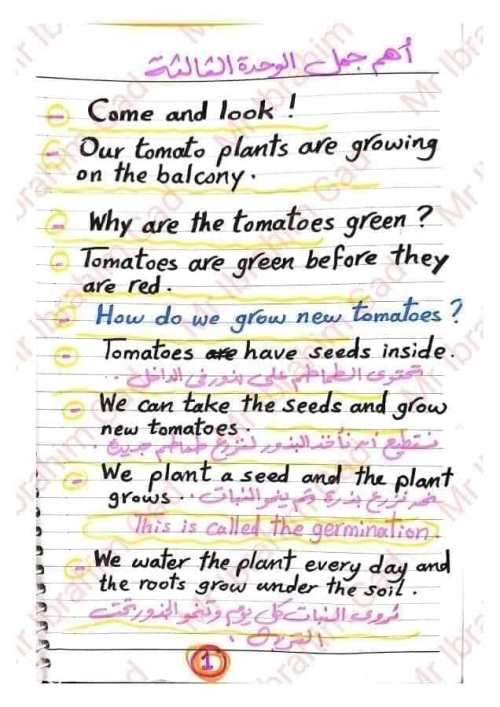 أهم جمل الوحدة الثالثة
- Come and look !
- Our tomato plants are growing
on the balcony.
- Why are the tomatoes green ?
- Tomatoes are green before they
are red.
- How do we grow new tomatoes ?
- Tomatoes are have seeds inside.
تحتوى الطماطم على بذور فى الداخل ..
- We can take the seeds and grow
new tomatoes.
نستطيع أن نأخذ البذور لنزرع طماطم جديدة.
- We plant a seed and the plant
grows. نحن نزرع بذرة ثم ينمو النبات..
This is called the germination.
- We water the plant every day and
the roots grow under the soil.
نروى النبات كل يوم وتنمو الجذور تحت
التربة.
1
Mr Ibrahim Gad